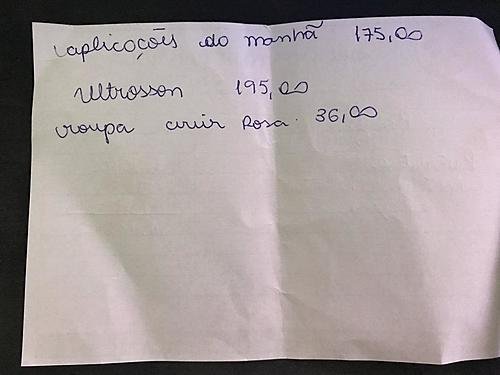 aplicoções do manhã 175,00
Ultrosson 195,00
roupa cruir Rosa. 36,00